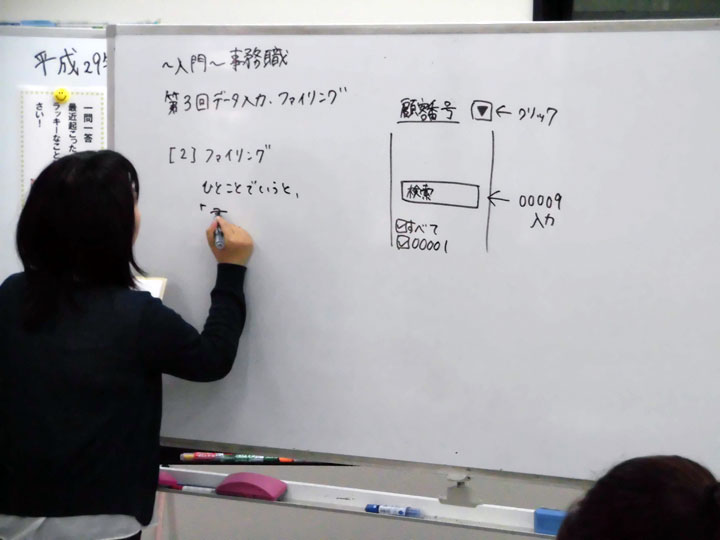 平成29
一問一答
最近起こった
ラッキーなこと
さい！
～入門～事務職
第3回データ入力、ファイリング
[2]ファイリング
ひとことでいうと、
「
顧客番号 ▼ ← クリック
検索 ← 00009
入力
☑すべて
☑00001